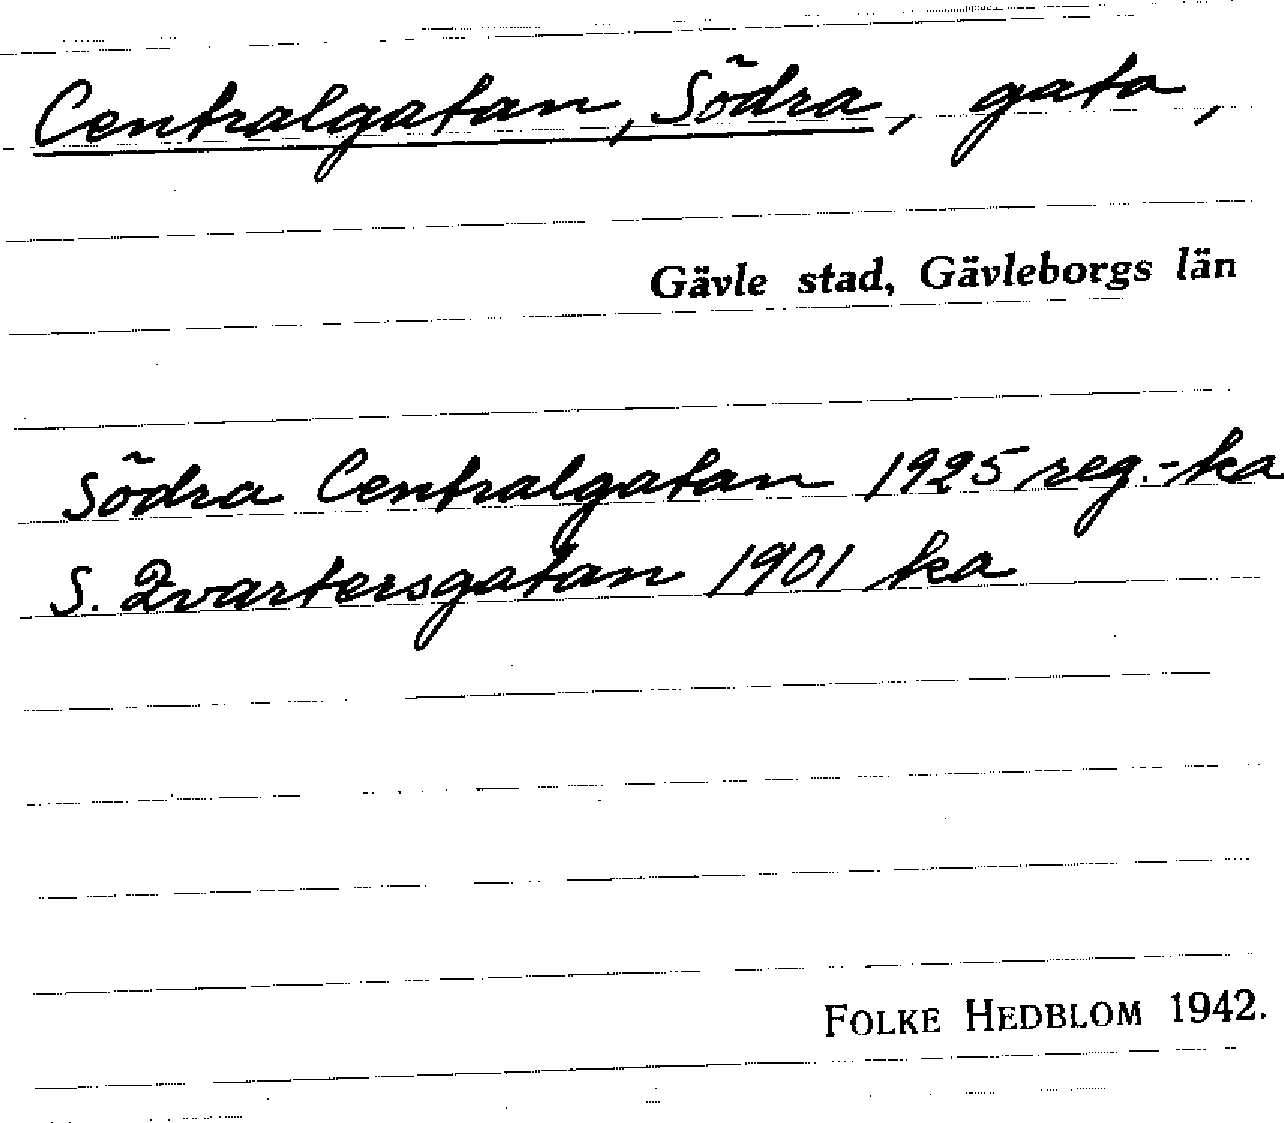 Centralgatan, Södra, gata,
Gävle stad, Gävleborgs län
Södra Centralgatan 1925 reg.-ka
S. Qvartersgatan 1901 ka
FOLKE HEDBLOM 1942.